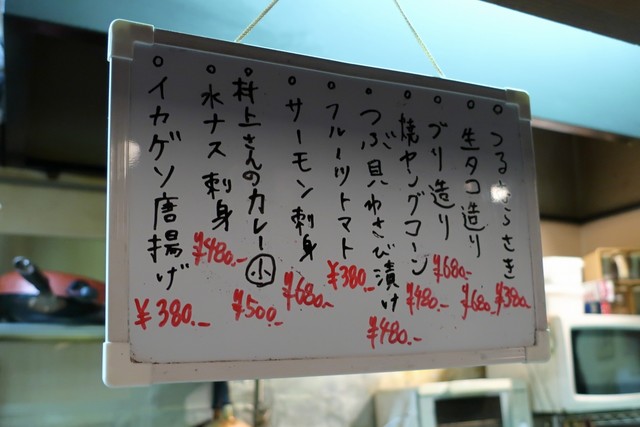 ○つるむらさき ¥380.-
○生タコ造り ¥680.-
○ブリ造り ¥680.-
○焼ヤングコーン ¥480.-
○つぶ貝わさび漬け ¥480.-
○フルーツトマト ¥380.-
○サーモン刺身 ¥680.-
○村上さんのカレー小 ¥500.-
○水ナス刺身 ¥480.-
○イカゲソ唐揚げ ¥380.-